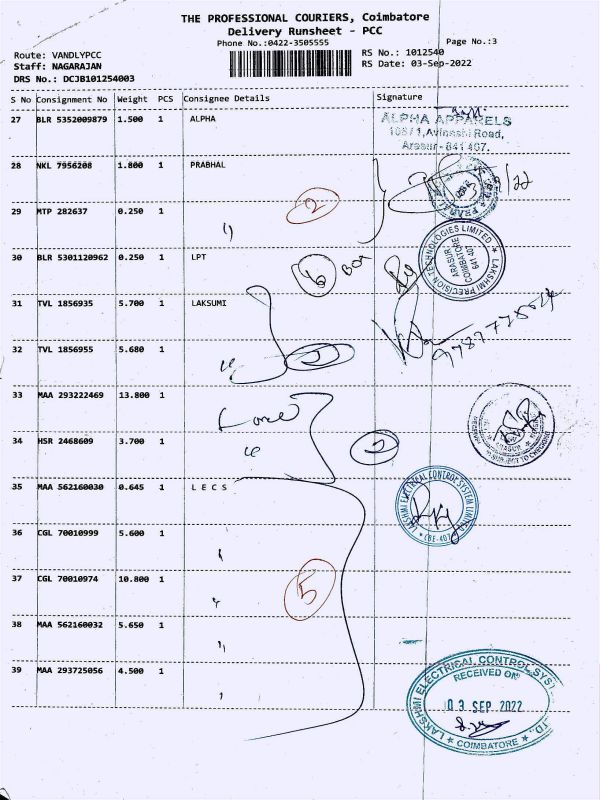 THE PROFESSIONAL COURIERS, Coimbatore
Delivery Runsheet - PCC
Phone No.:0422-3505555
Page No.:3
Route: VANDLYPCC
RS No.: 1012540
Staff: NAGARAJAN
RS Date: 03-Sep-2022
DRS No.: DCJB101254003
S No Consignment No Weight PCS Consignee Details Signature
27 BLR 5352009879 1.500 1 ALPHA
ALPHA APPARELS
Avinashi Road,
Arasur - 641 407.
28 NKL 7956208 1.800 1 PRABHAL
29 MTP 282637 0.250 1 〃
2
30 BLR 5301120962 0.250 1 LPT
BOX
LAKSHMI PRECISION TECHNOLOGIES LIMITED
ARASUR
COIMBATORE
641 407
31 TVL 1856935 5.700 1 LAKSUMI
32 TVL 1856955 5.680 1
33 MAA 293222469 13.800 1
34 HSR 2468609 3.700 1
35 MAA 562160030 0.645 1 L E C S
LAKSHMI ELECTRICAL CONTROL SYSTEM LIMITED
CBE-407
36 CGL 70010999 5.600 1
37 CGL 70010974 10.800 1
5
38 MAA 562160032 5.650 1 〃
39 MAA 293725056 4.500 1
LAKSHMI ELECTRICAL CONTROL SYS
RECEIVED ON
03 SEP 2022
COIMBATORE